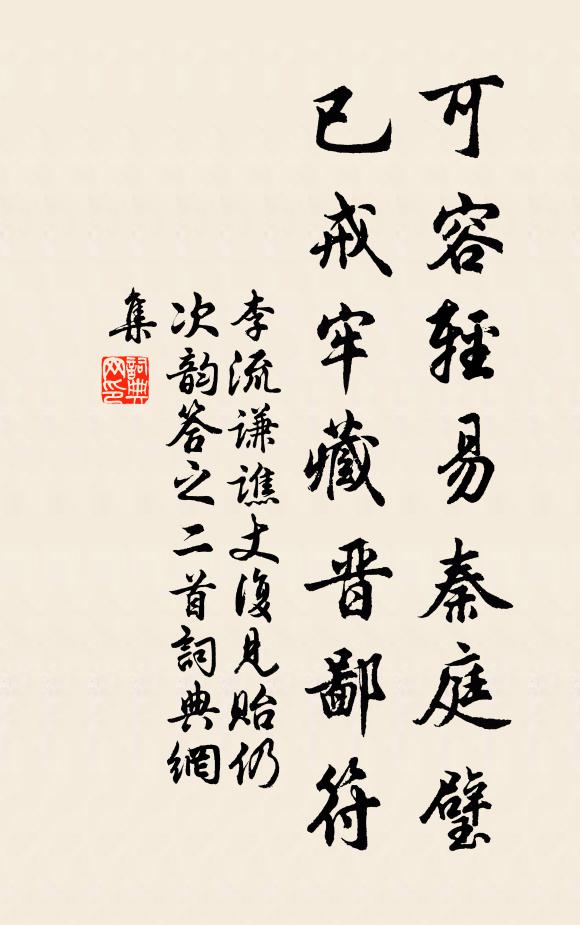 可容輕易秦庭璧
已戒牢藏晋鄙符
李流謙譙丈復見貽仍
次韵答之二首詞典網
集
詞典網印